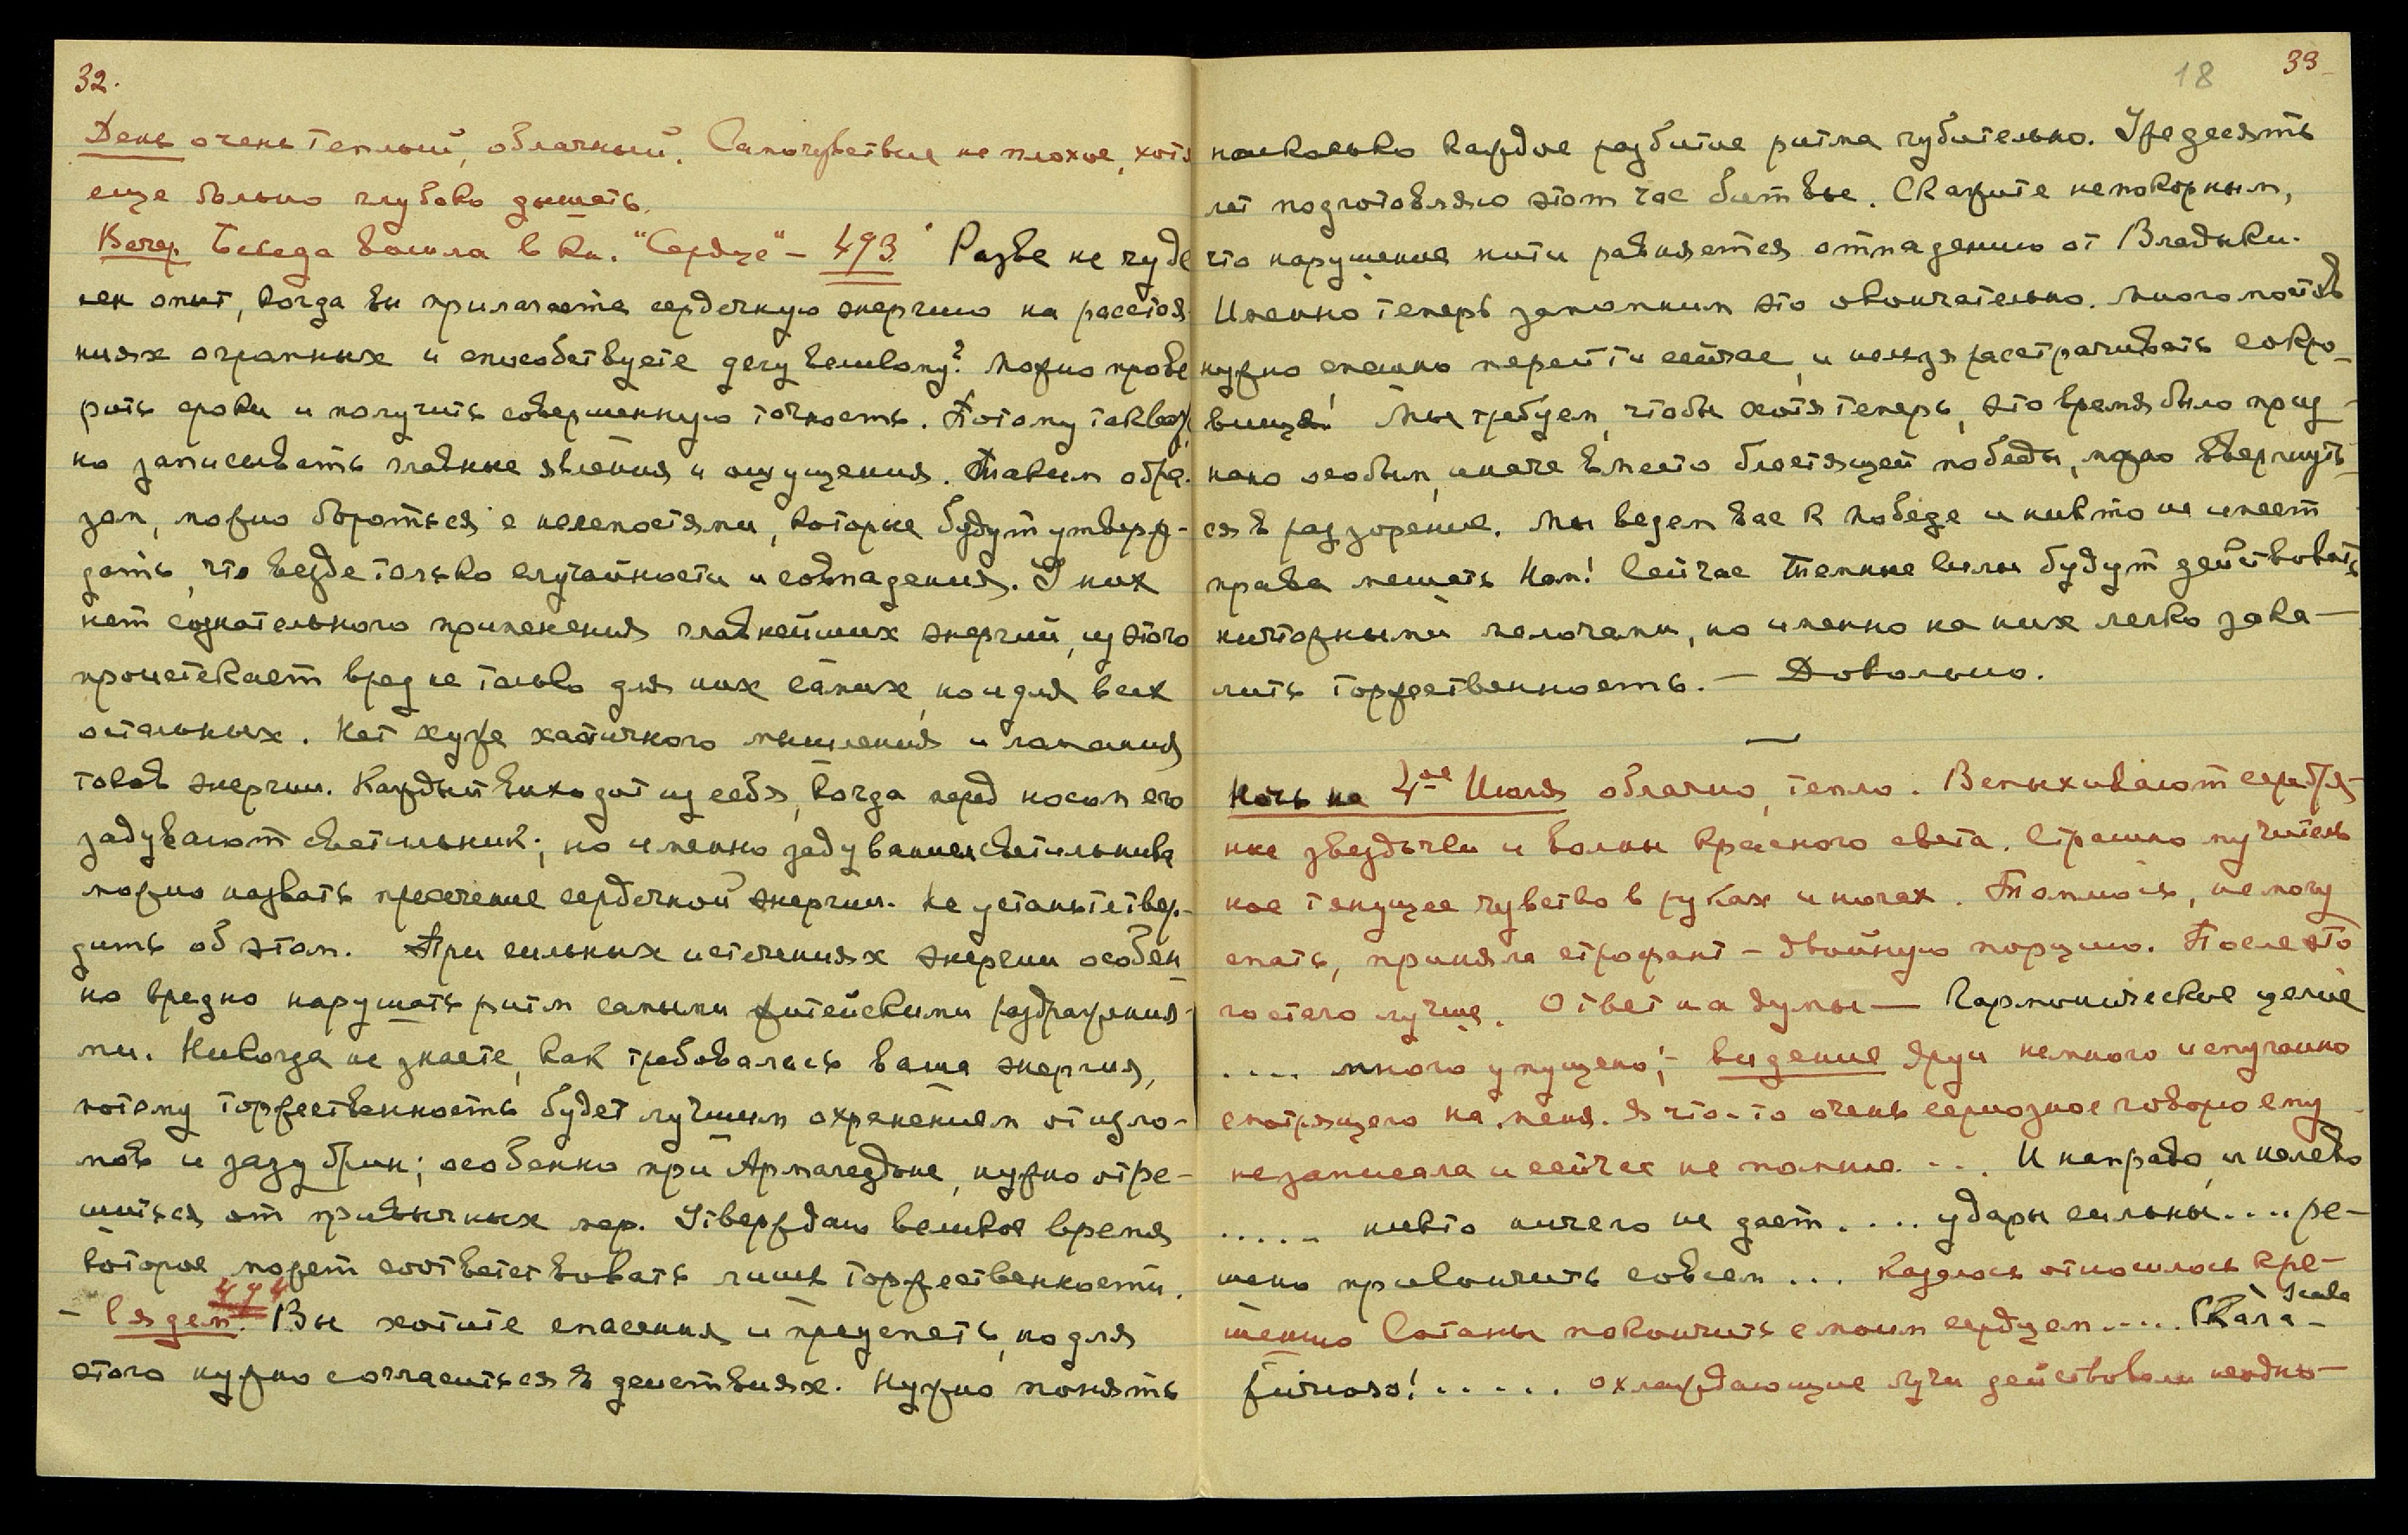 32.
День очень теплый, облачный. Самочувствие не плохое, хотя
еще больно глубоко дышать.
Вечер. Беседа вошла в кн. "Сердце" – 493. Разве не чуде
сен опыт, когда вы прилагаете сердечную энергию на расстоя
ниях огромных и способствуете делу великому? Можно прове
рить сроки и получить совершенную точность. Потому так важ
но записывать главные явления и ощущения. Таким обра-
зом, можно бороться с нелепостями, которые будут утверж-
дать, что везде только случайности и совпадения. У них
нет сознательного применения главнейших энергий, из этого
проистекает вред не только для них самих, но и для всех
остальных. Нет хуже хаотичного мышления и ломания
токов энергии. Каждый выходит из себя, когда перед носом его
задувают светильник; но именно задуванием светильника
можно назвать пресечение сердечной энергии. Не устаньте твер-
дить об этом. При сильных истечениях энергии особен
но вредно нарушать ритм самыми житейскими раздражения-
ми. Никогда не знаете, как требовалась ваша энергия,
потому торжественность будет лучшим охранением от изло-
мов и зазубрин; особенно при Армагеддоне, нужно отре-
шиться от привычных мер. Утверждаю великое время
которое может соответствовать лишь торжественности.
494
– Сядем. Вы хотите спасения и преуспеть, но для
этого нужно согласиться в действиях. Нужно понять
18 33
насколько каждое разбитие ритма губительно. Уже десять
лет подготовляю этот час битвы. Скажите непокорным,
что нарушение нити равняется отпадению от Владыки.
Именно теперь запомним это окончательно. Много мостов
нужно спешно перейти сейчас, и нельзя растрачивать сокро-
вища! Мы требуем, чтобы хотя теперь, это время было приз-
нано особым, иначе вместо блестящей победы, можно ввергнуть-
ся в разорение. Мы ведем вас к победе и никто не имеет
права мешать Нам! Сейчас темные силы будут действовать
ничтожными мелочами, но именно на них легко зака-
лить торжественность. – Довольно.
Ночь на 4-ое Июля облачно, тепло. Вспыхивают серебря-
ные звездочки и волны красного света. Страшно мучитель
ное тянущее чувство в руках и ногах. Томлюсь, не могу
спать, приняла строфант – двойную порцию. После это
го стало лучше. Ответ на думы – Гармоническое целое
.... много упущено; – видение Яруи немного испуганно
смотрящего на меня. Я что-то очень серьозное говорю ему
не записала и сейчас не помню. ... И направо, и налево
..... никто ничего не дает. ... удары сильны .... ре-
шено прикончить совсем ... Казалось относилось к ре-
шению Сатаны покончить с моим сердцем .... Скала-
Scala
фичиозо! ..... охлаждающие лучи действовали неодно-